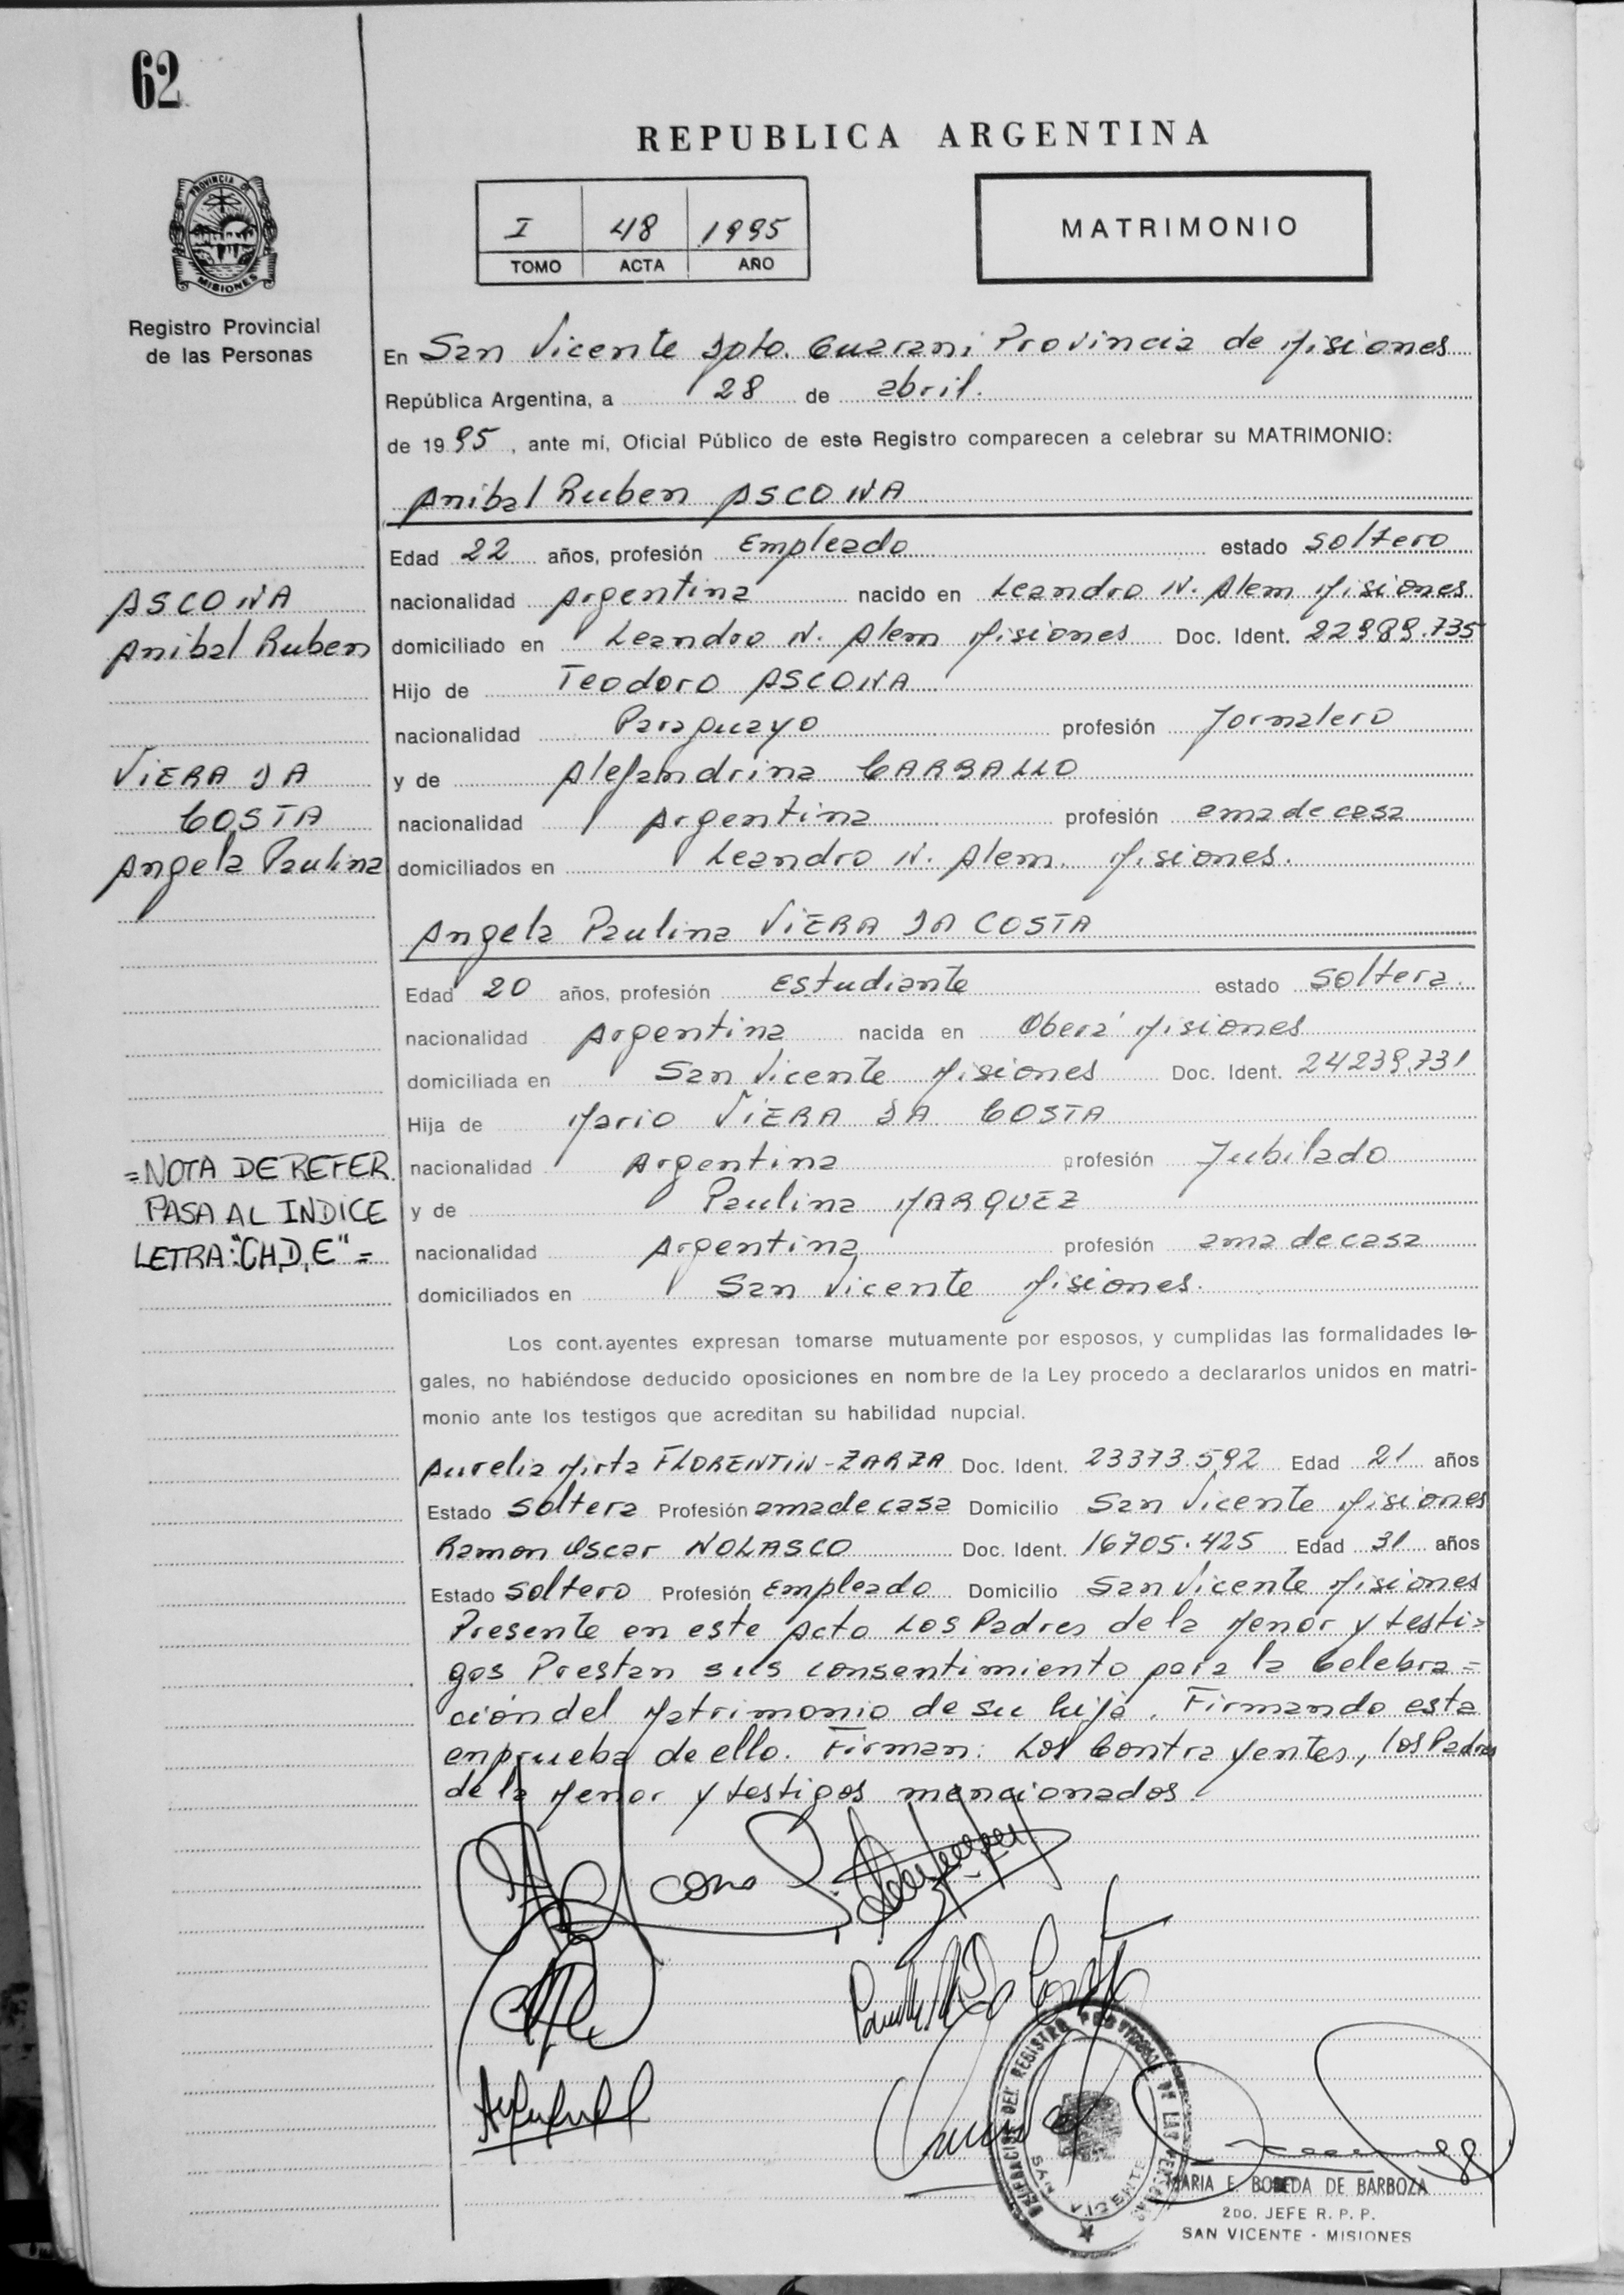 62
REPUBLICA ARGENTINA
PROVINCIA DE
MISIONES
Registro Provincial
de las Personas
I 48 1995
TOMO ACTA AÑO
MATRIMONIO
En San Vicente Dpto. Guarani Provincia de Misiones
República Argentina, a 28 de abril.
de 1995, ante mi, Oficial Público de este Registro comparecen a celebrar su MATRIMONIO:
Anibal Ruben ASCONA
Edad 22 años, profesión Empleado estado soltero
nacionalidad Argentina nacido en Leandro N. Alem Misiones
domiciliado en Leandro N. Alem Misiones Doc. Ident. 22989.735
Hijo de Teodoro ASCONA
nacionalidad Paraguayo profesión Jornalero
y de Alejandrina CARBALLO
nacionalidad Argentina profesión ama de casa
domiciliados en Leandro N. Alem. Misiones.
ASCONA
Anibal Ruben
VIERA DA
COSTA
Angela Paulina
Angela Paulina VIERA DA COSTA
Edad 20 años, profesión Estudiante estado Soltera.
nacionalidad Argentina nacida en Oberá Misiones
domiciliada en San Vicente Misiones Doc. Ident. 24239.731
Hija de Mario VIERA DA COSTA
nacionalidad Argentina profesión Jubilado
y de Paulina MARQUEZ
nacionalidad Argentina profesión ama de casa
domiciliados en San Vicente Misiones.
=NOTA DE REFER.
PASA AL INDICE
LETRA:"CH,D,E"=
Los cont.ayentes expresan tomarse mutuamente por esposos, y cumplidas las formalidades le-
gales, no habiéndose deducido oposiciones en nombre de la Ley procedo a declararlos unidos en matri-
monio ante los testigos que acreditan su habilidad nupcial.
Aurelia Mirta FLORENTIN-ZARZA Doc. Ident. 23373.592 Edad 21 años
Estado Soltera Profesión ama de casa Domicilio San Vicente Misiones
Ramon Oscar NOLASCO Doc. Ident. 16705.425 Edad 31 años
Estado Soltero Profesión Empleado Domicilio San Vicente Misiones
Presente en este Acto Los Padres de la Menor y testi=
gos Prestan sus consentimiento para la Celebra=
ción del Matrimonio de su hija. Firmando esta
en prueba de ello. Firman: Los Contrayentes, los Padres
de la Menor y testigos mencionados.
DELEGACION DEL REGISTRO PROVINCIAL DE LAS PERSONAS
SAN VICENTE
MARIA E. BOBEDA DE BARBOZA
2DO. JEFE R. P. P.
SAN VICENTE - MISIONES